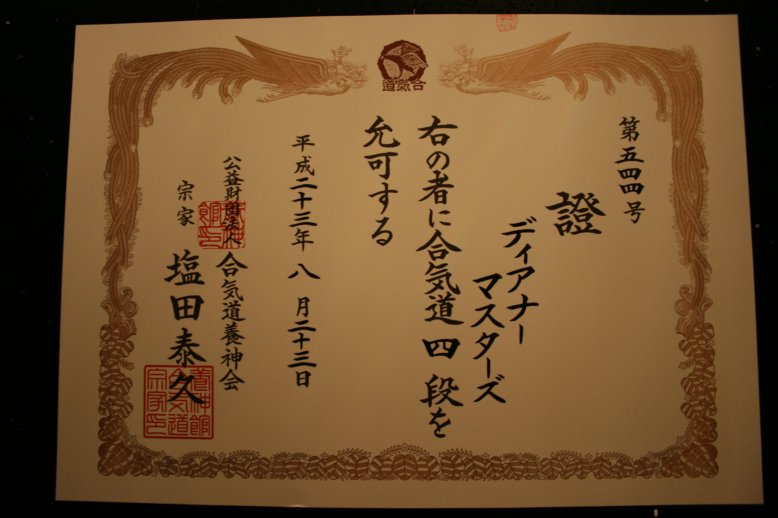 道氣合
第五四四号
證
ディアナー
マスターズ
右の者に合気道四段を
允可する
平成二十三年八月二十三日
公益財団法人
合気道養神会
宗家 塩田泰久